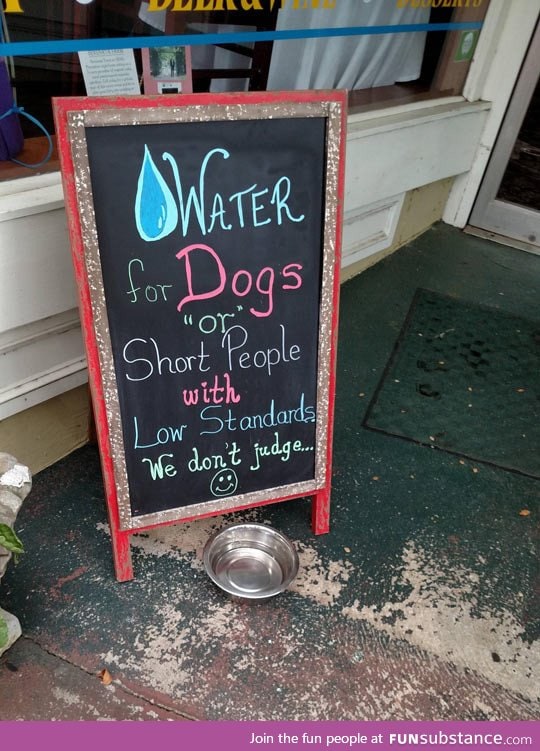 BEER & WINE
DESSERTS
WATER
for Dogs
"or"
Short People
with
Low Standards
We don't judge...
Join the fun people at FUNsubstance.com